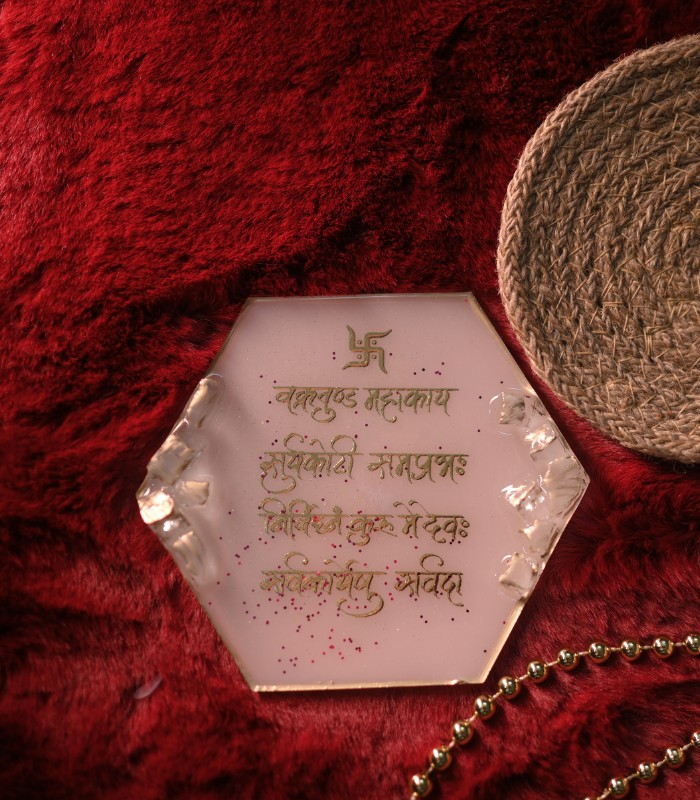 वक्रतुण्ड महाकाय
सुर्यकोटी समप्रभः
निर्विघ्नं कुरु मे देवः
सर्वकार्येषु सर्वदा